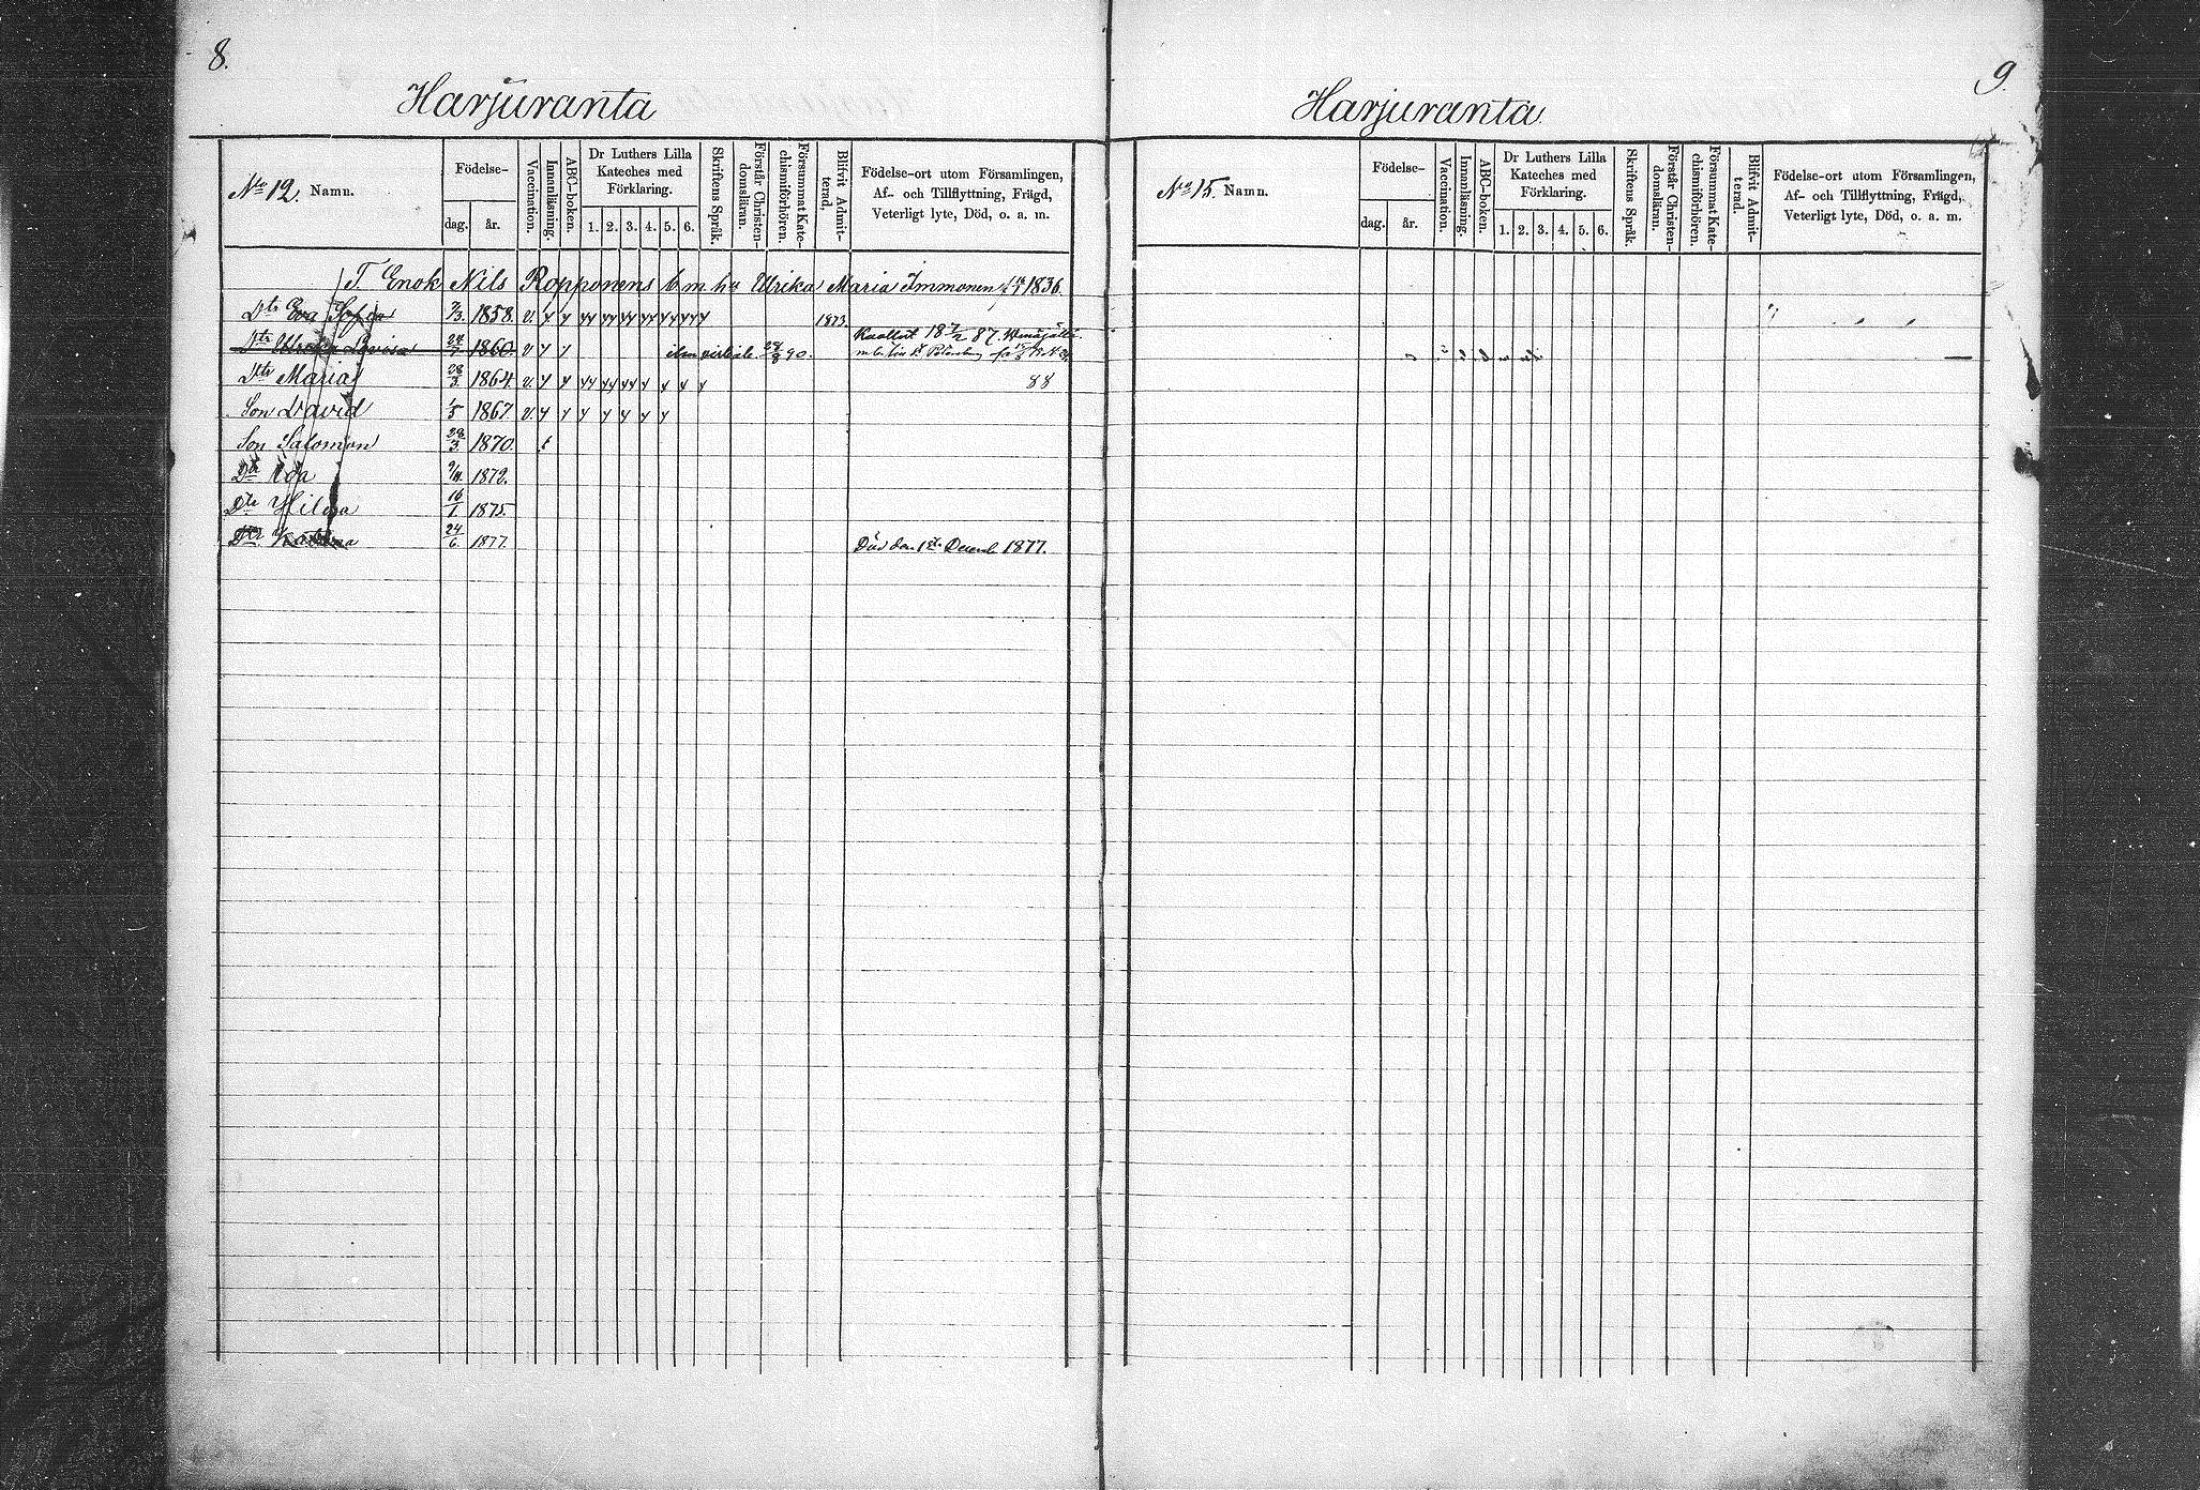 8.
Harjuranta
No 12. Namn.
Födelse-
dag. år.
Vaccination.
Innanläsning.
ABC-boken.
Dr Luthers Lilla
Kateches med
Förklaring.
1. 2. 3. 4. 5. 6.
Skriftens Språk.
Förstår Christen-
domsläran.
Försummat Kate-
chismiförhören.
Blifvit Admit-
terad.
Födelse-ort utom Församlingen,
Af- och Tillflyttning, Frägd,
Veterligt lyte, Död, o. a. m.
T. Enok Nils Ropponens b. m. hu Ulrika Maria Immonen 1836.
Dtr Eva Sofia 2/3. 1858. v. y y yy yy yy yy yy yy y 1873.
Dtr Ulrika Lovisa 1860. v y y 28/8 90. Kuollut 18 87.
Dtr Maria 28/3. 1864. v. y y yy yy yy y y y y 88
Son David 1/5 1867. v. y y y y y y y
Son Salomon 28/3. 1870.
Dtr Ida 1872.
Dtr Hilda 16/1. 1875.
Dtr Katrina 24/6. 1877. Död den 1sta Decemb 1877.
9.
Harjuranta
No 15. Namn.
Födelse-
dag. år.
Vaccination.
Innanläsning.
ABC-boken.
Dr Luthers Lilla
Kateches med
Förklaring.
1. 2. 3. 4. 5. 6.
Skriftens Språk.
Förstår Christen-
domsläran.
Försummat Kate-
chismiförhören.
Blifvit Admit-
terad.
Födelse-ort utom Församlingen,
Af- och Tillflyttning, Frägd,
Veterligt lyte, Död, o. a. m.